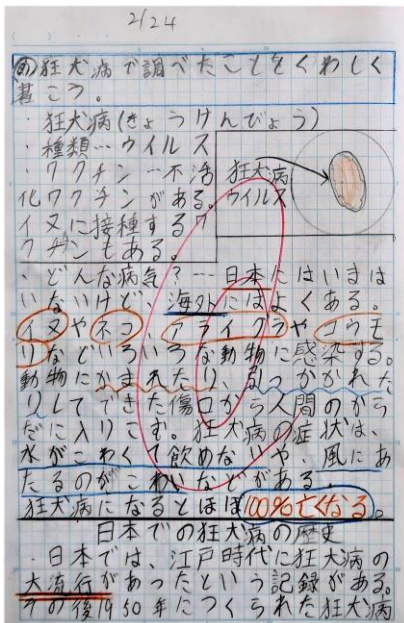 2/24
め狂犬病で調べたことをくわしく
書こう。
・狂犬病(きょうけんびょう)
・種類…ウイルス
・ワクチン…不活
化ワクチンがある。
イヌに接種するワ
クチンもある。
狂犬病
ウイルス
・どんな病気?…日本にはいまは
いないけど、海外にはよくある。
イヌやネコ アライグマやコウモ
リなどいろいろな動物に感染する。
動物にかまれたり、引っかかれた
りしてできた傷口から人間のから
だに入りこす。狂犬病の症状は、
水がこわくて飲めないや、風にあ
たるのがこわいなどがある。
狂犬病になるとほぼ100%亡くなる。
日本での狂犬病の歴史
・日本では、江戸時代に狂犬病の
大流行があったという記録がある。
その後1950年につくられた狂犬病